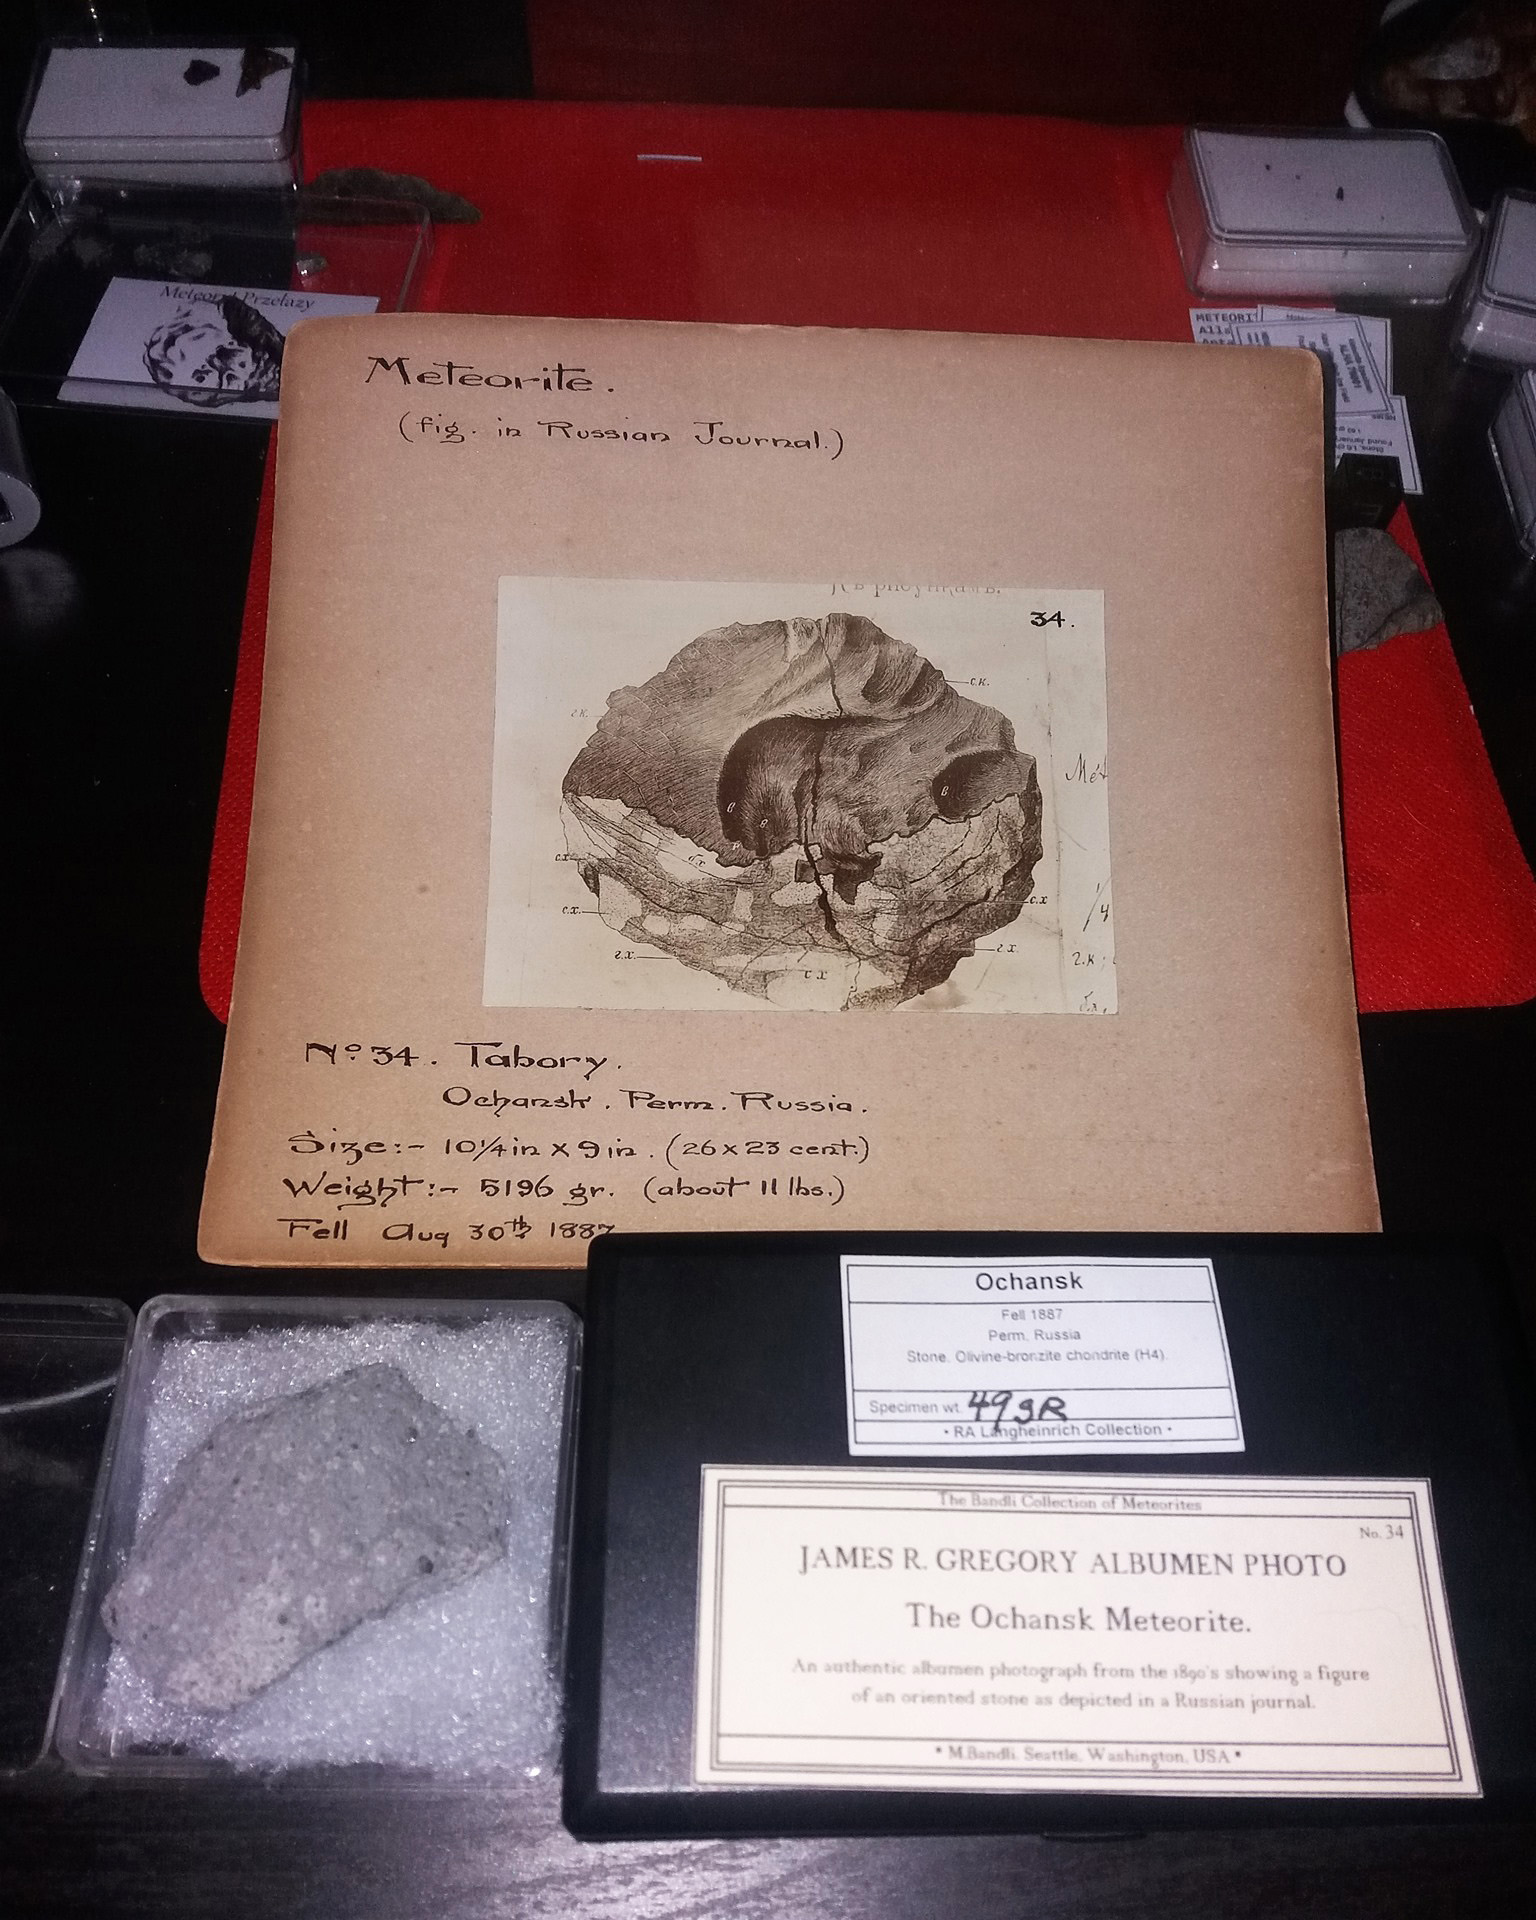 Meteoryt Przełazy
METEORI
Alla
Meteorite.
(fig. in Russian Journal.)
34.
c.к.
г.к.
Mét
в
в
в
c.x.
б.x
c.x
c.x.
г.x.
г.x.
c x
1/4
г.к
б.x.
No 34. Tabory.
Ochansk. Perm. Russia.
Size:- 10 1/4 in x 9 in. (26 x 23 cent.)
Weight:- 5196 gr. (about 11 lbs.)
Fell Aug 30th 1887
Ochansk
Fell 1887
Perm, Russia
Stone. Olivine-bronzite chondrite (H4).
Specimen wt. 49 gR
• RA Langheinrich Collection •
The Bandli Collection of Meteorites
No. 34
JAMES R. GREGORY ALBUMEN PHOTO
The Ochansk Meteorite.
An authentic albumen photograph from the 1890's showing a figure
of an oriented stone as depicted in a Russian journal.
• M.Bandli, Seattle, Washington, USA •